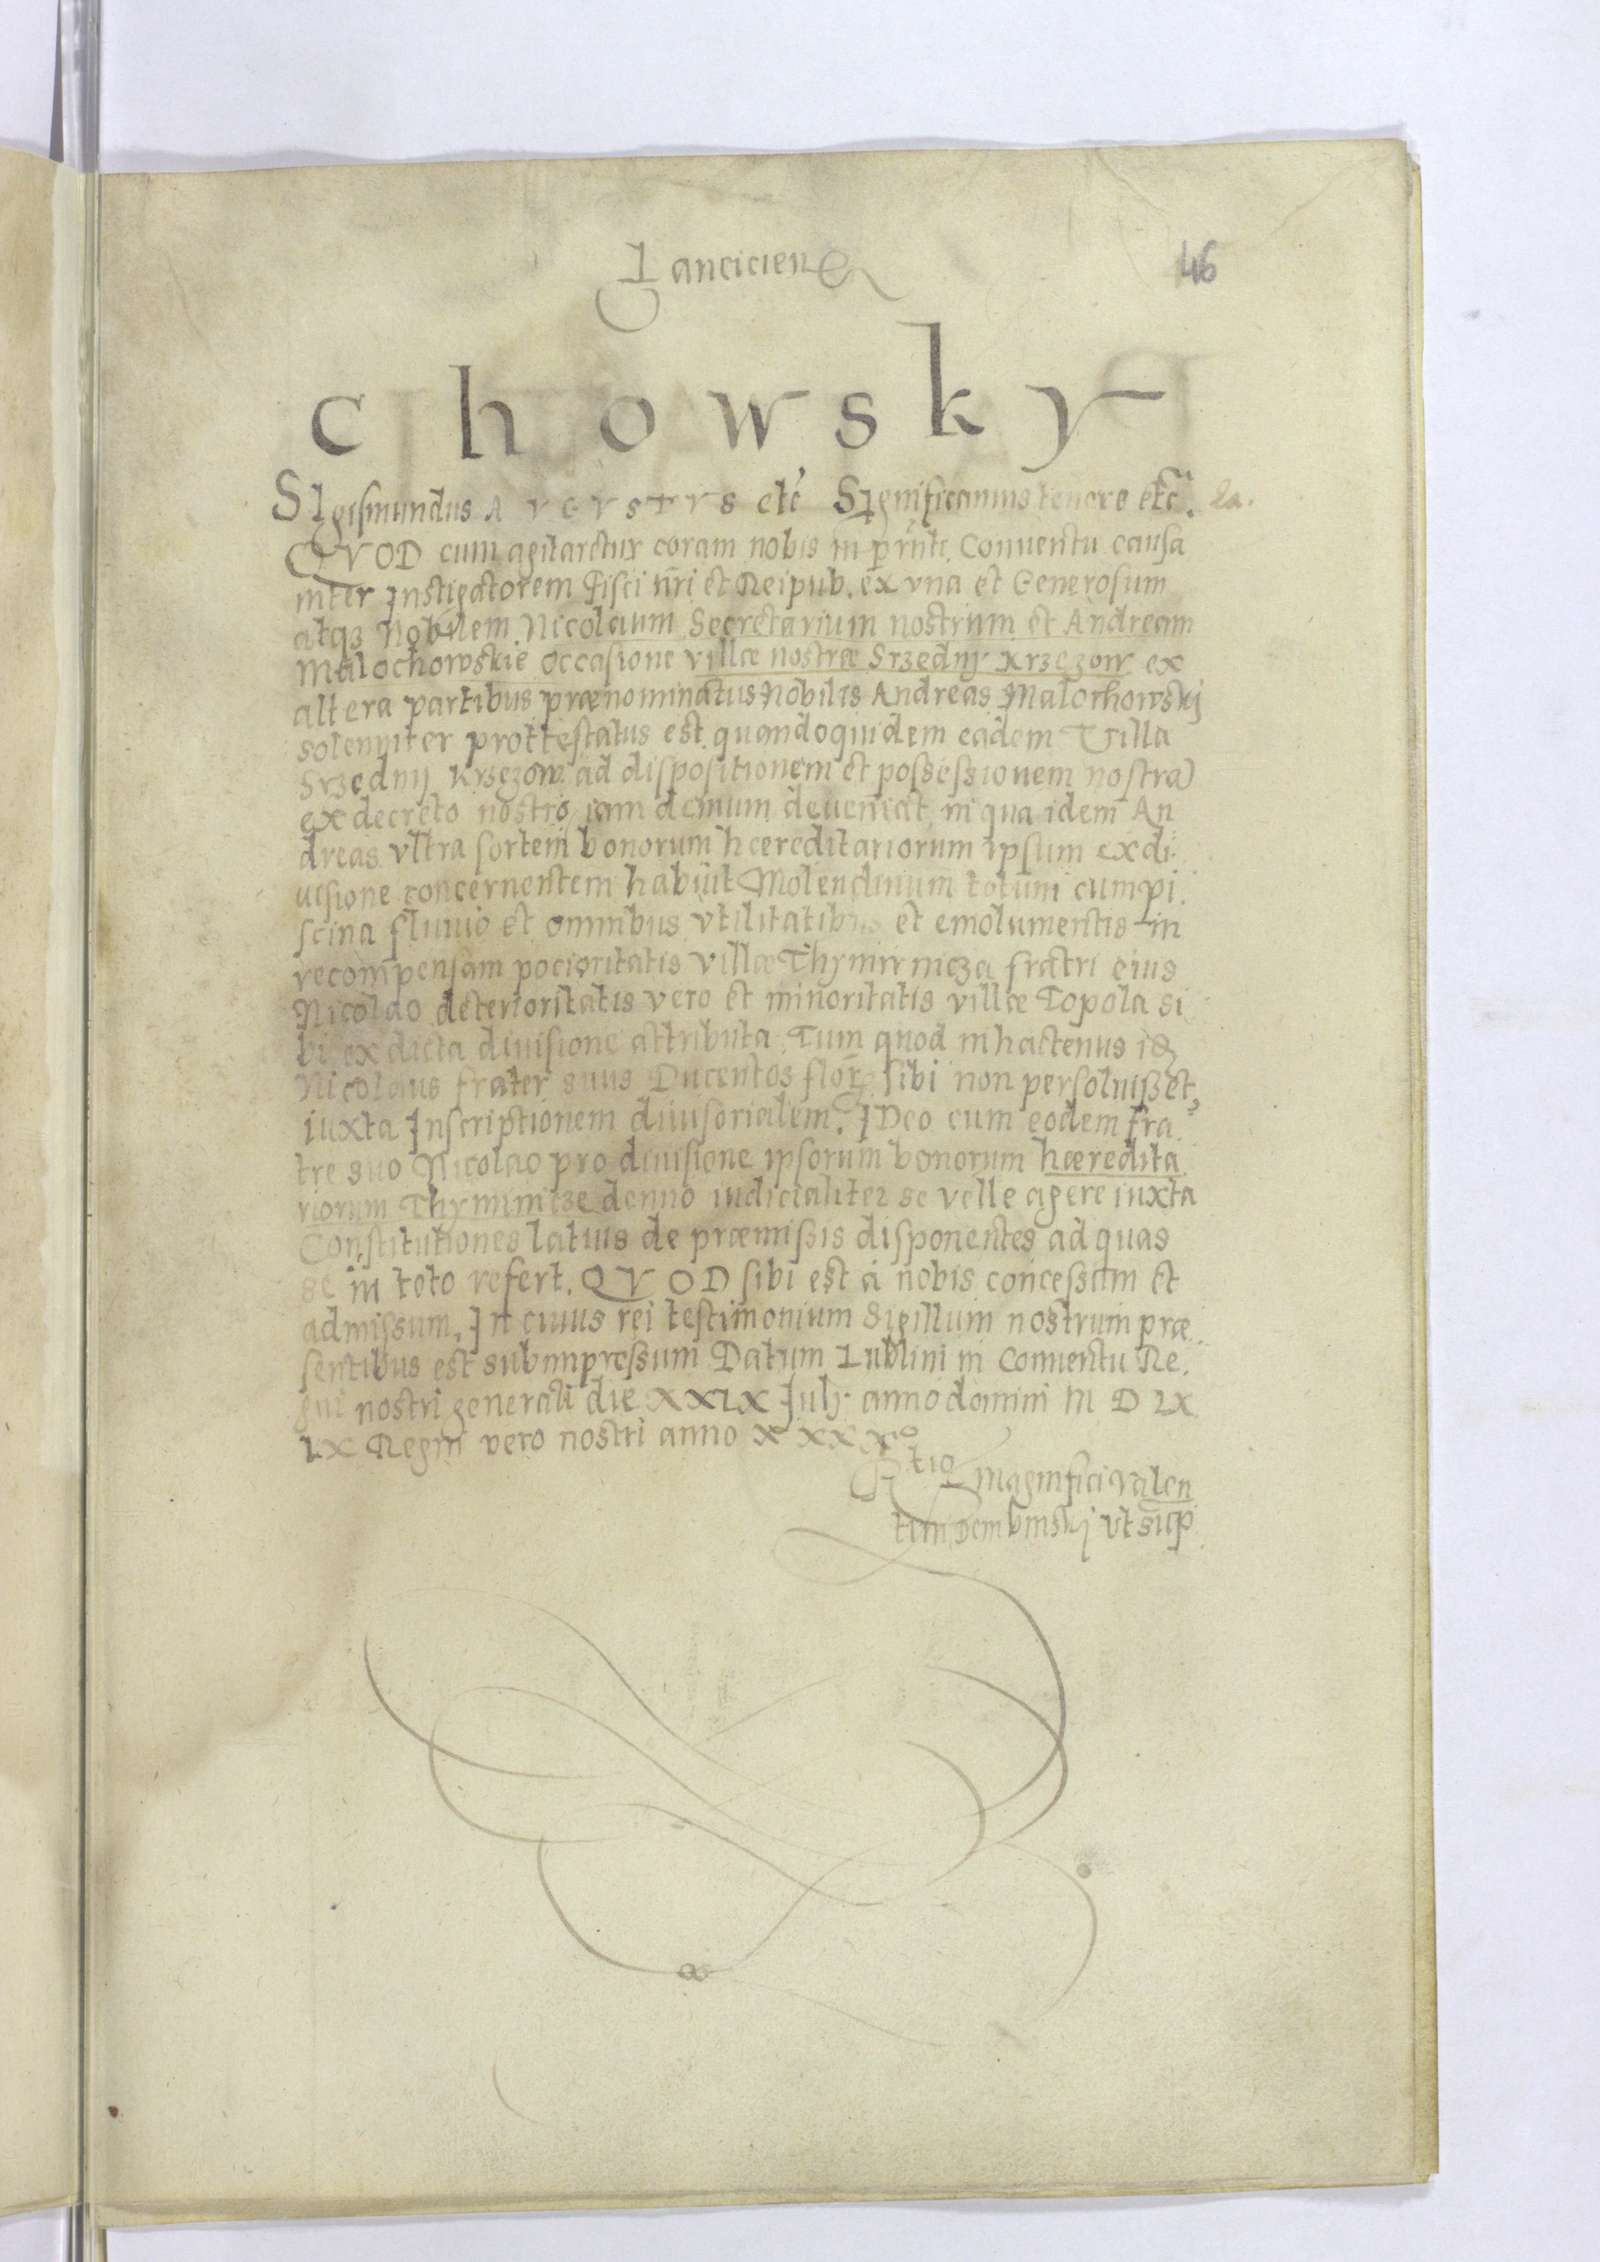 Lancicien
46
chowsky
Sigismundus AVGVSTVS etc̃ Significamus tenore etc̃. La.
QVOD cum agitaretur coram nobis in p̃rnti Conuentu causa
inter Instigatorem Fisci nr̃i et Reipub. ex vna et Generosum
atqꝫ Nobilem Nicolaum Secretarium nostrum et Andream
Malochowskie occasione villæ nostræ Srzednij Krzęzow ex
altera partibus prænominatus Nobilis Andreas Malochowskj
solenniter prottestatus est quandoquidem eadem Villa
Srzednij Krzęzow ad dispositionem et possessionem nostrã
ex decreto nostro iam demum deueneat, in qua idem An
dreas vltra sortem bonorum hæreditariorum ipsum ex di
uisione concernentem habuit Molendinum totum cum pi
scina fluuio et omnibus vtilitatibus et emolumentis in
recompensam pocioritatis villæ Thymienicza fratri eius
Nicolao deterioritatis vero et minoritatis villæ Topola si
bi ex dicta diuisione attributa. Tum quod in hactenus idꝫ
Nicolaus frater suus Ducentos flor̃ sibi non persoluisset,
iuxta Inscriptionem diuisorialem. IDeo cum eodem fra
tre suo Nicolao pro diuisione ipsorum bonorum hæredita
riorum Thyminicze denuo iudicialiter se velle agere iuxta
Constitutiones latius de præmissis disponentes ad quas
se in toto refert. QVOD sibi est á nobis concessum et
admissum. In cuius rei testimonium Sigillum nostrum præ
sentibus est subimpressum Datum Lublini in Conuentu Re.
gni nostri generali die XXIX Julij anno domini M D LX
IX Regni vero nostri anno XXXXº
Rtio Magnifici Valen
tini Dembinskj vt sup̃